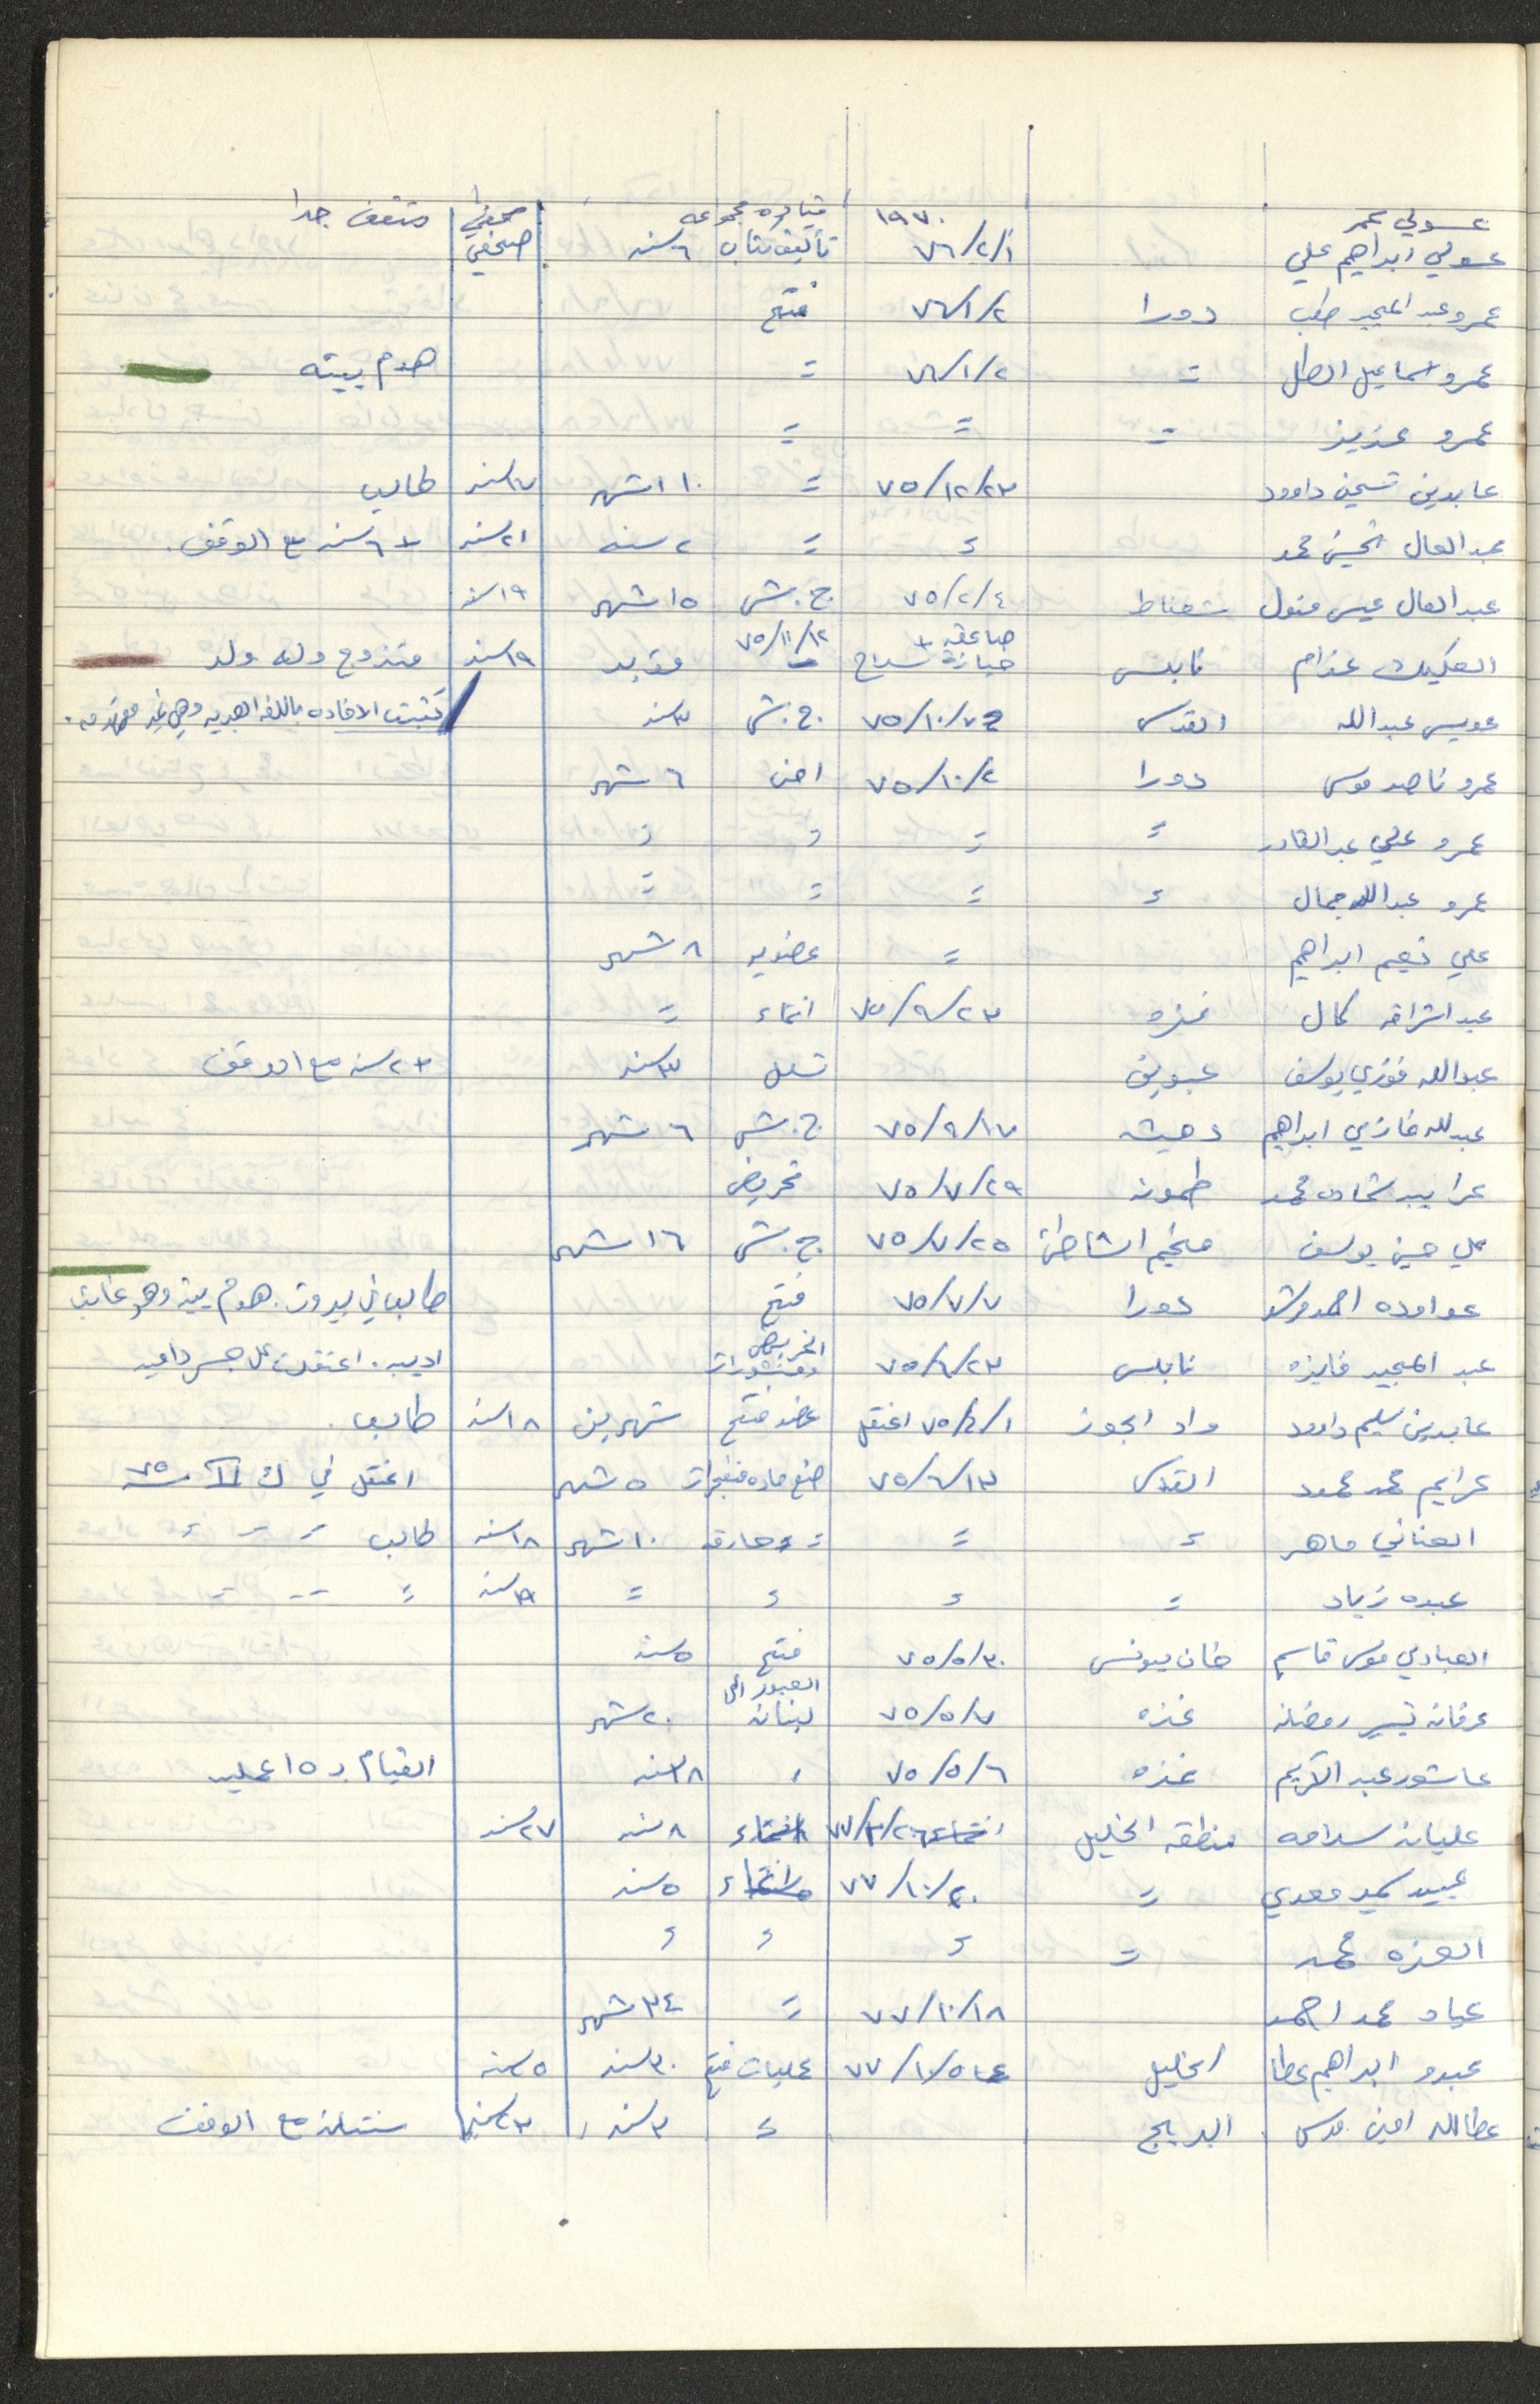 عسولي عمر ١٩٧٠ قياده مجموعه صحفي مثقف جدا
عسولي ابراهيم علي ٧٦/٢/١ تأليف كتاب ٦ سنه صحفي
عمرو عبد المجيد دورا ٧٦/١/٢ فتح
عمرو اسماعيل الطل = ٧٦/١/٢ = هدم بيته
عمرو عزيز = = =
عابدين تحسين داوود ٧٥/١٢/٢٣ = ١١٠ شهر ١٧ سنه طالب
عبد العال تحسين محمد = = ٢ سنه ٢١ سنه + ٦ سنه مع الوقف.
عبد العال عيسى شعفاط ٧٥/٢/٤ ج.ش ١٥ شهر ١٩ سنه
العكليك عزام نابلس صاعقه + حيازة سلاح ٧٥/١١/١٢ مؤبد ١٩ سنه متزوج وله ولد
عويس عبدالله القدس ٧٥/١٠/٧ ج.ش ٣ سنه كتبت الافاده باللغه العبريه وهي غير
عمرو ناصر موسى دورا ٧٥/١٠/٢ امن ٦ شهر
عمرو علي عبد القادر = = = =
عمرو عبدالله جمال = = = =
علي نعيم ابراهيم = عضويه ٨ شهر
عبد كمال غزه ٧٥/٩/٢٣ انتماء =
عبدالله فوزي يوسف عبوين تسلل ٣ سنه + ٢ سنه مع الوقف
عبدالله غازي ابراهيم دهيشه ٧٥/٩/١٧ ج.ش ٦ شهر
شحاده محمد طمونه ٧٥/٧/٢٩ تحريض
علي حسين يوسف مخيم الشاطئ ٧٥/٧/٢٥ ج.ش ١٦ شهر
عواوده احمد دورا ٧٥/٧/٧ فتح طالب في بيروت. هدم بيته وهو غائب
عبد المجيد فايزه نابلس ٧٥/٦/٢٣ التحريض ومنشورات اديبه. اعتقلت على جسر داميه
عابدين سليم داوود واد الجوز ٧٥/٦/١ اعتقل عضو فتح شهرين ١٨ سنه طالب.
محمد محمود القدس ٧٥/٦/١٣ صنع ماده متفجرات ٥ شهر اعتقل في ك ١١ سنه ٧٥
العناني ماهر = = = وحارقه ١٠ شهر ١٨ سنه طالب = = =
عبده زياد = = = = ١٩ سنه = = =
العبادي موسى قاسم خان يونس ٧٥/٥/٣٠ فتح ٥ سنه
عرفات تيسير رمضان غزه ٧٥/٥/٧ العبور الى لبنان ٢٠ شهر
عاشور عبد الكريم غزه ٧٥/٥/٦ = ٣٨ سنه القيام بـ ١٥ عمليه
عليان سلامه منطقه الخليل ٧٧/٣/٢٦ انتماء ٨ سنه ٢٧ سنه
عبيد سعدي = ٧٧/١٠/٢٠ انتماء ٥ سنه
العزه محمد = = = =
عياد محمد احمد ٧٧/١٠/١٨ = ٣٤ شهر
عبدو ابراهيم عطا الخليل ٧٧/١٠/٥ عمليات فتح ٣٠ سنه ٥ سنه
عطاالله امين موسى البريج = ٣ سنه ٢٣ سنه سنتان مع الوقف